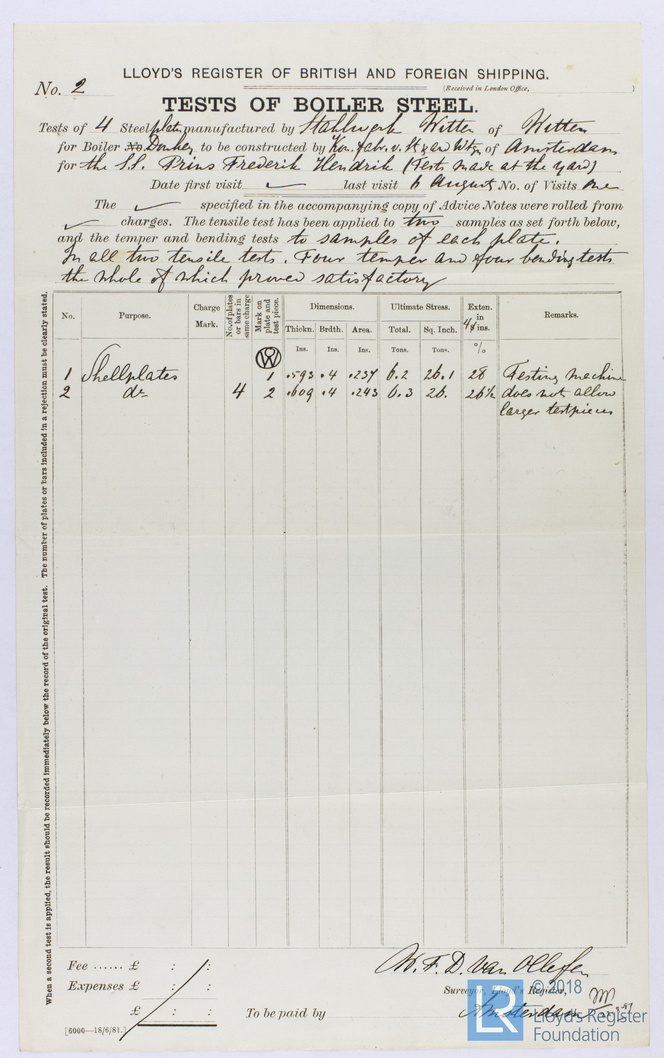 LLOYD'S REGISTER OF BRITISH AND FOREIGN SHIPPING.
No. 2
(Received in London Office, )
TESTS OF BOILER STEEL.
Tests of 4 Steel plates manufactured by Stahlwerk Witten of Witten
for Boiler No Donkey to be constructed by Kon. fabr. v. St & an Wtgn of Amsterdam
for the S.S. Prins Frederik Hendrik (Tests made at the yard)
Date first visit ✓ last visit 6 August No. of Visits one
The ✓ specified in the accompanying copy of Advice Notes were rolled from
✓ charges. The tensile test has been applied to two samples as set forth below,
and the temper and bending tests to samples of each plate.
In all two tensile tests. Four temper and four bending tests
the whole of which proved satisfactory
No. Purpose. Charge Mark. No. of plates or bars in same charge Mark on plate and test piece. Dimensions. Ultimate Stress. Exten. in 4 8 ins. Remarks.
Thickn. Brdth. Area. Total. Sq. Inch.
Ins. Ins. Ins. Tons. Tons. %
W
1 Shellplates 1 .593 .4 .237 6.2 26.1 28 Testing machine
2 do 4 2 .609 .4 .243 6.3 26. 26½ does not allow
larger testpieces
When a second test is applied, the result should be recorded immediately below the record of the original test. The number of plates or bars included in a rejection must be clearly stated.
Fee ...... £ : :
Expenses £ : :
£ : :
[6000—18/6/81.]
To be paid by
W. F. D. Van Ollefen
Surveyor, Lloyd's Register,
Amsterdam
© 2018
LR
Lloyd's Register
Foundation